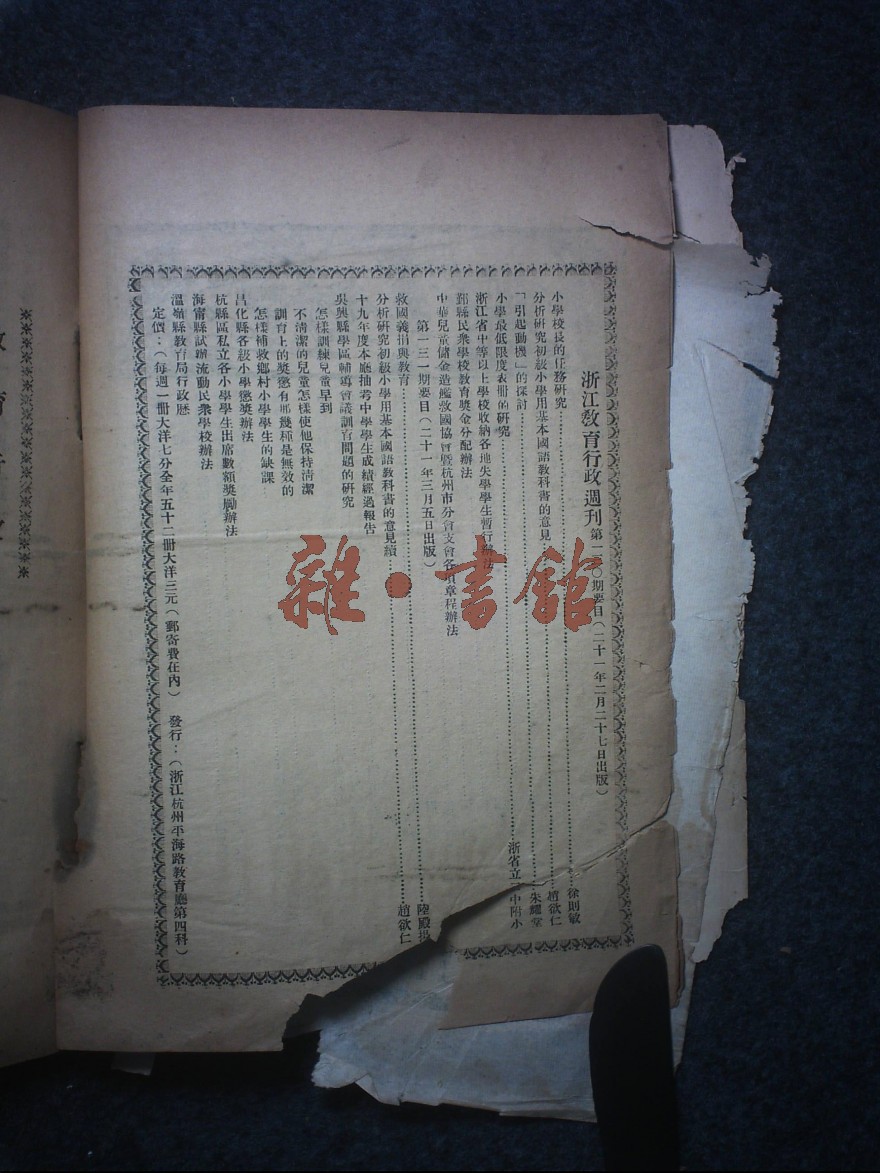 浙江教育行政週刊第一三〇期要目(二十一年二月二十七日出版)
小學校長的任務研究……徐則敏
分析研究初級小學用基本國語教科書的意見……趙欲仁
「引起動機」的探討……朱耀堂
小學最低限度表冊的研究……浙省立一中附小
浙江省中等以上學校收納各地失學學生暫行辦法
鄞縣民衆學校教育獎金分配辦法
中華兒童儲金造艦救國協會暨杭州市分會支會各項章程辦法
第一三一期要目(二十一年三月五日出版)
救國義捐與教育……陸殿揚
分析研究初級小學用基本國語教科書的意見續……趙欲仁
十九年度本廳抽考中學學生成績經過報告
吳興縣學區輔導會議訓育問題的研究
怎樣訓練兒童早到
不清潔的兒童怎樣使他保持清潔
訓育上的獎懲有那幾種是無效的
怎樣補救鄉村小學學生的缺課
昌化縣各級小學懲獎辦法
杭縣區私立各小學學生出席數額獎勵辦法
海甯縣試辦流動民衆學校辦法
溫嶺縣教育局行政歷
定價:(每週一冊大洋七分全年五十二冊大洋三元(郵寄費在內) 發行:(浙江杭州平海路教育廳第四科)
雜·書館